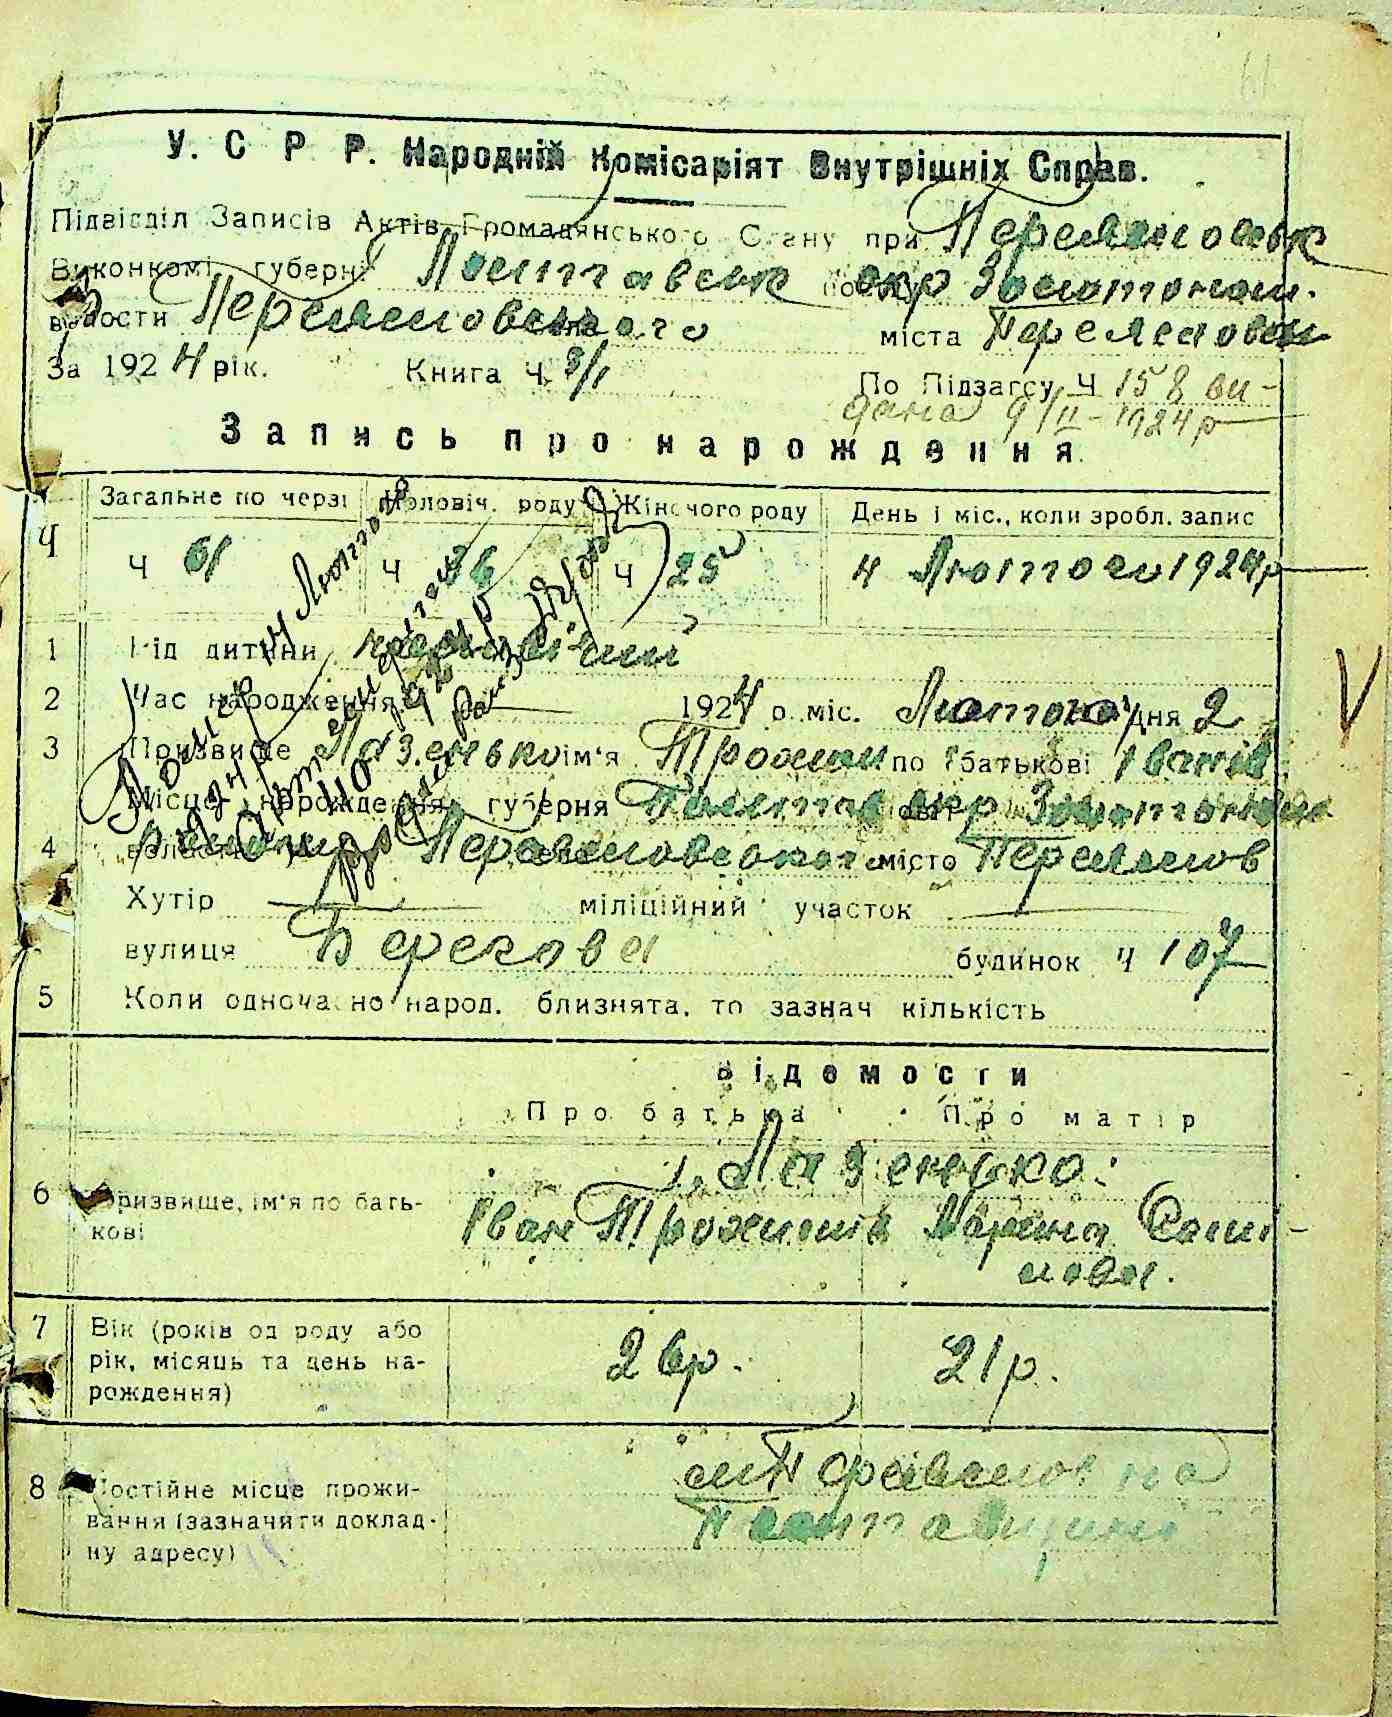 61
У. С Р Р. Народній Комісаріят Внутрішніх Справ.
Підвідділ Записів Актів Громадянського Стану при Переяславськ
Виконкомі губерні Полтавськ окр Золотонош.
волости Переяславського міста Переяслов
За 1924 рік. Книга Ч. 3/1 По Підзагсу Ч 158 ви-
дана 9/II-1924р
Запись про нарождення
Загальне по черзі Чоловіч. роду Жіночого роду День і міс., коли зробл. запис
Ч Ч 61 Ч 36 Ч 25 4 Лютого 1924р
1 Рід дитини чоловічий
2 Час народження 1924 р міс. Лютого дня 2
3 Призвище Лазенько ім'я Трохим по батькові Іванів
4 Місце народження губерня Полтав окр Золотонош
волость Переяславського місто Переяслов
Хутір міліційний участок
вулиця Берегова будинок ч 107
5 Коли одночасно народ. близнята, то зазнач кількість
Відомости
Про батька Про матір
Лазенько:
6 Призвище, ім'я по бать-кові Іван Трохимів Марина Самі-
лова.
7 Вік (років од роду або рік, місяць та день на-рождення) 26р. 21р.
8 Постійне місце прожи-вання (зазначити доклад-ну адресу) м Переяслов на
Полтавщині
Помер 4 Лютого